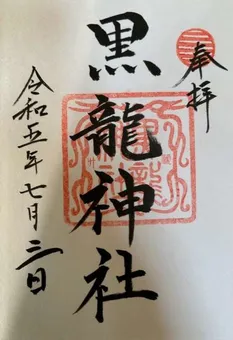 奉拝
黒龍神社
令和五年七月三日